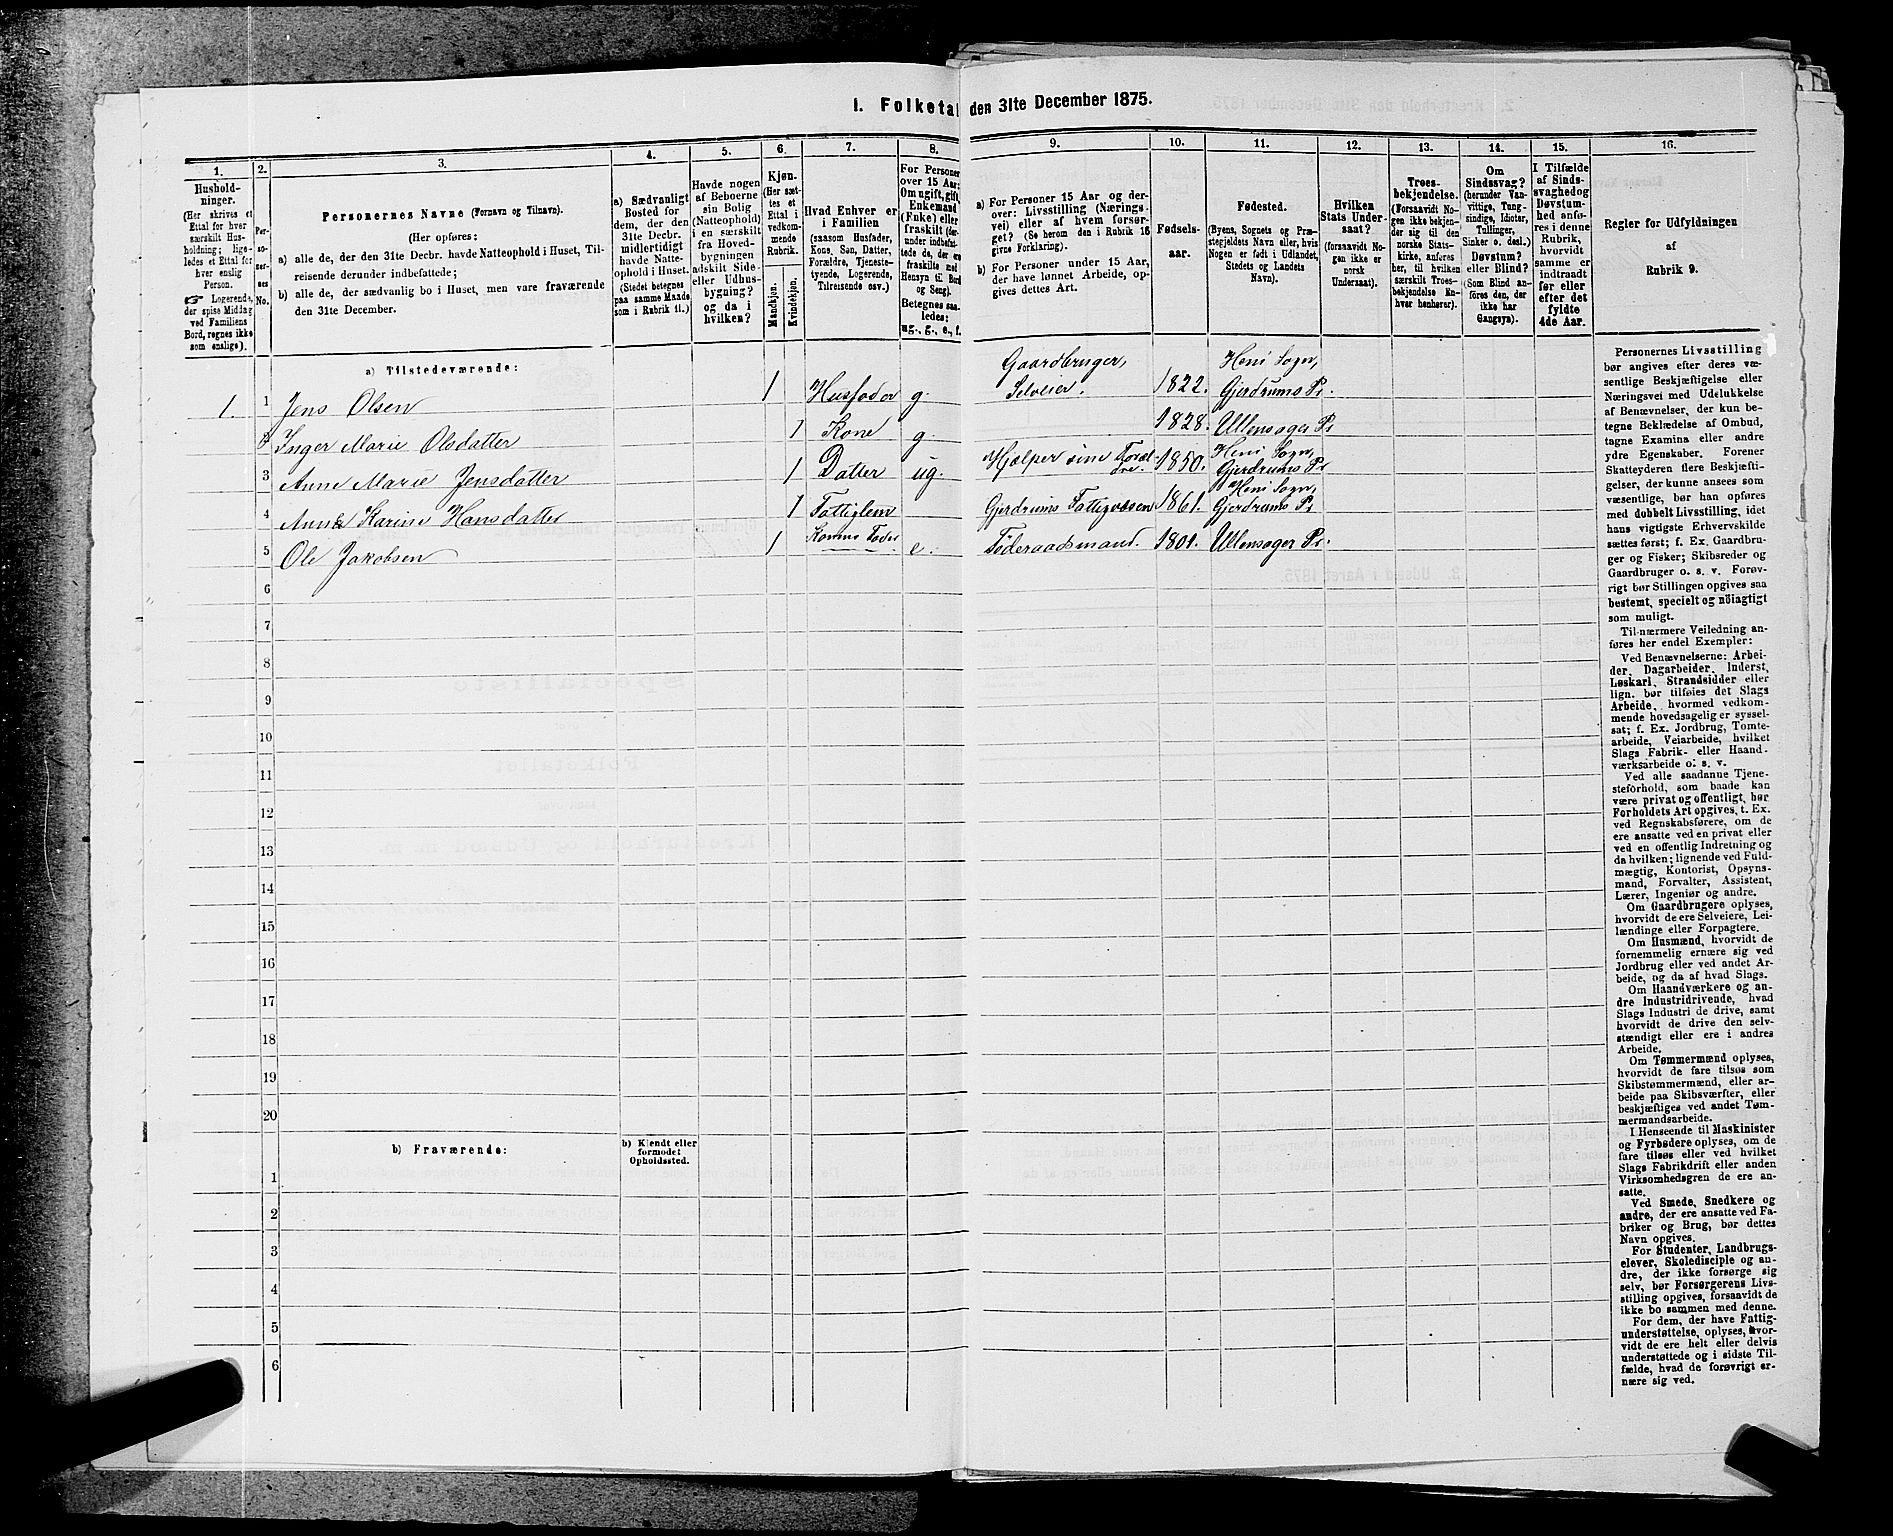 1. Folketal den 31te December 1875.
1. 2. 3. 4. 5. 6. 7. 8. 9. 10. 11. 12. 13. 14. 15. 16.
Hushold-
ninger.
(Her skrives et
Ettal for hver
særskilt Hus-
holdning; lige-
ledes et Ettal for
hver enslig
Person.
☞ Logerende,
der spise Middag
ved Familiens
Bord, regnes ikke
som enslige).
Personernes No.
Personernes Navne (Fornavn og Tilnavn).
(Her opføres:
a) alle de, der den 31te Decbr. havde Natteophold i Huset, Til-
reisende derunder indbefattede;
b) alle de, der sædvanlig bo i Huset, men vare fraværende
den 31te December.
a) Sædvanligt
Bosted for
dem, der den
31te Decbr.
midlertidigt
havde Natte-
ophold i Huset.
(Stedet betegnes
paa samme Maade
som i Rubrik 11.)
Havde nogen
af Beboerne
sin Bolig
(Natteophold)
i en særskilt
fra Hoved-
bygningen
adskilt Side-
eller Udhus-
bygning?
og da i
hvilken?
Kjøn.
(Her sæt-
tes et
Ettal i
vedkom-
mende
Rubrik.
Mandkjøn.
Kvindekjøn.
Hvad Enhver er
i Familien
(saasom Husfader,
Kone, Søn, Datter,
Forældre, Tjeneste-
tyende, Logerende,
Tilreisende osv.)
For Personer
over 15 Aar:
Om ugift, gift,
Enkemand
(Enke) eller
fraskilt (der-
under indbefat-
tede de, der ere
fraskilte med
Hensyn til Bord
og Seng).
Betegnes saa-
ledes:
ug., g., e., f.
a) For Personer 15 Aar og der-
over: Livsstilling (Nærings-
vei) eller af hvem forsør-
get? (Se herom den i Rubrik 16
givne Forklaring).
b) For Personer under 15 Aar,
der have lønnet Arbeide, op-
gives dettes Art.
Fødsels-
aar.
Fødested.
(Byens, Sognets og Præ-
stegjeldets Navn eller, hvis
Nogen er født i Udlandet,
Stedets og Landets
Navn).
Hvilken
Stats Under-
saat?
(forsaavidt No-
gen ikke er
norsk
Undersaat).
Troes-
bekjendelse.
(Forsaavidt No-
gen ikke bekjen-
der sig til den
norske Stats-
kirke, anføres
her, til hvilken
særskilt Troes-
bekjendelse En-
hver henhører).
Om
Sindssvag?
(herunder Van-
vittige, Tung-
sindige, Idioter,
Tullinger,
Sinker o. desl.)
Døvstum?
eller Blind?
(Som Blind an-
føres den, der
ikke har
Gangsyn).
I Tilfælde
af Sinds-
svaghed og
Døvstum-
hed anfø-
res i denne
Rubrik,
hvorvidt
samme er
indtraadt
før eller
efter det
fyldte
4de Aar.
Regler for Udfyldningen
af
Rubrik 9.
a) Tilstedeværende:
1. 1 Jens Olsen 1 Husfader g. Gaardbruger, Selveier. 1822. Heni Sogn, Gjerdrums Pr.
2 Inger Marie Olsdatter 1 Kone g. 1828. Ullensager Pr
3 Anne Marie Jensdatter 1 Datter ug. Hjelper sine Foræl-dre. 1850. Heni Sogn, Gjerdrums Pr
4 Anne Karine Hansdatter 1 Fattiglem Gjerdrums Fattigvæsen 1861. Heni Sogn, Gjerdrums Pr
5 Ole Jakobsen 1 Konens Fader e. Føderaadsmand. 1801. Ullensager Pr.
6
7
8
9
10
11
12
13
14
15
16
17
18
19
20
b) Fraværende:
b) Kjendt eller
formodet
Opholdssted.
1
2
3
4
5
6
Personernes Livsstilling
bør angives efter deres væ-
sentlige Beskjæftigelse eller
Næringsvei med Udelukkelse
af Benævnelser, der kun be-
tegne Beklædelse af Ombud,
tagne Examina eller andre
ydre Egenskaber. Forener
Skatteyderen flere Beskjæfti-
gelser, der kunne ansees som
væsentlige, bør han opføres
med dobbelt Livsstilling, idet
hans vigtigste Erhvervskilde
sættes først; f. Ex. Gaardbru-
ger og Fisker; Skibsreder og
Gaardbruger o. s. v. Forøv-
rigt bør Stillingen opgives saa
bestemt, specielt og nøiagtigt
som muligt.
Til nærmere Veiledning an-
føres her endel Exempler:
Ved Benævnelserne: Arbei-
der, Dagarbeider, Inderst,
Løskarl, Strandsidder eller
lign. bør tilføies det Slags
Arbeide, hvormed vedkom-
mende hovedsagelig er syssel-
sat; f. Ex. Jordbrug, Tomte-
arbeide, Veiarbeide, hvilket
Slags Fabrik- eller Haand-
værksarbeide o. s. v.
Ved alle saadanne Tjene-
steforhold, som baade kan
være privat og offentligt, bør
Forholdets Art opgives, t. Ex.
ved Regnskabsførere, om de
ere ansatte ved en privat eller
ved en offentlig Indretning og
da hvilken; lignende ved Fuld-
mægtig, Kontorist, Opsyns-
mand, Forvalter, Assistent,
Lærer, Ingeniør og andre.
Om Gaardbrugere oplyses,
hvorvidt de ere Selveiere, Lei-
lændinge eller Forpagtere.
Om Husmænd, hvorvidt de
fornemmelig ernære sig ved
Jordbrug eller ved andet Ar-
beide, og da af hvad Slags.
Om Haandværkere og an-
dre Industridrivende, hvad
Slags Industri de drive, samt
hvorvidt de drive den selv-
stændigt eller ere i andres
Arbeide.
Om Tømmermænd oplyses,
hvorvidt de fare tilsøs som
Skibstømmermænd, eller ar-
beide paa Skibsværfter, eller
beskjæftiges ved andet Tøm-
mermandsarbeide.
I Henseende til Maskinister
og Fyrbødere oplyses, om de
fare tilsøs eller ved hvilket
Slags Fabrikdrift eller anden
Virksomhedsgren de ere an-
satte.
Ved Smede, Snedkere og
andre, der ere ansatte ved Fa-
briker og Brug, bør dettes
Navn opgives.
For Studenter, Landbrugs-
elever, Skoledisciple og an-
dre, der ikke forsørge sig
selv, bør Forsørgerens Livs-
stilling opgives, forsaavidt de
ikke bo sammen med denne.
For dem, der have Fattig-
understøttelse, oplyses, hvor-
vidt de ere helt eller delvis
understøttede og i sidste Til-
fælde, hvad de forøvrigt er-
nære sig ved.